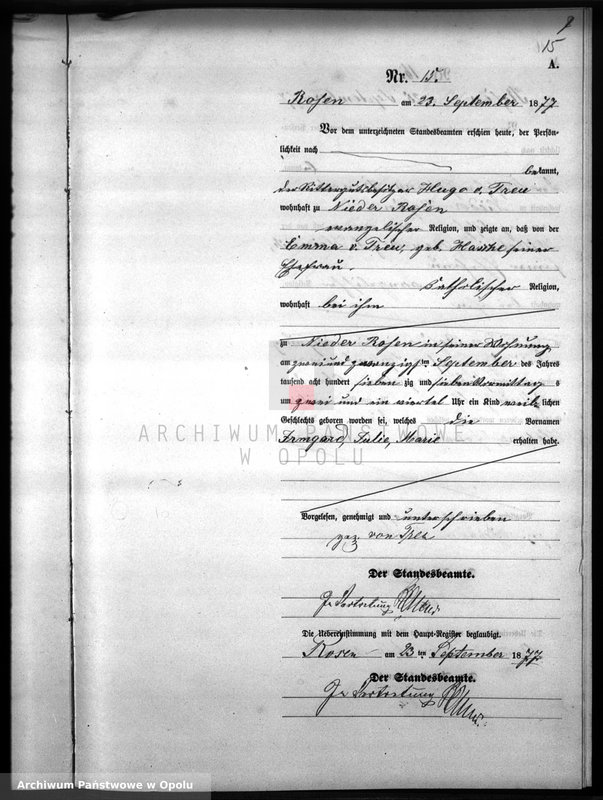 9
15
A.
Nr. 15.
Rosen am 23. September 1877
Vor dem unterzeichneten Standesbeamten erschien heute, der Persön-
lichkeit nach
bekannt,
der Rittergutsbesitzer Hugo v. Treu
wohnhaft zu Nieder Rosen
evangelischer Religion, und zeigte an, daß von der
Emma v. Treu, geb. seiner
Ehefrau.
katholischer Religion,
wohnhaft bei ihm
zu Nieder Rosen in seiner Wohnung
am zwei und zwanzigsten September des Jahres
tausend acht hundert sieben zig und sieben Vormittags
um zwei und ein viertel Uhr ein Kind weiblichen
Geschlechts geboren worden sei, welches die Vornamen
Irmgard, Julie, Marie erhalten habe.
ARCHIWUM PAŃSTWOWE
W OPOLU
Vorgelesen, genehmigt und unterschrieben
gez. von Treu
Der Standesbeamte.
In Vertretung
Die Uebereinstimmung mit dem Haupt-Register beglaubigt.
Rosen am 23ten September 1877
Der Standesbeamte.
In Vertretung
Archiwum Państwowe w Opolu